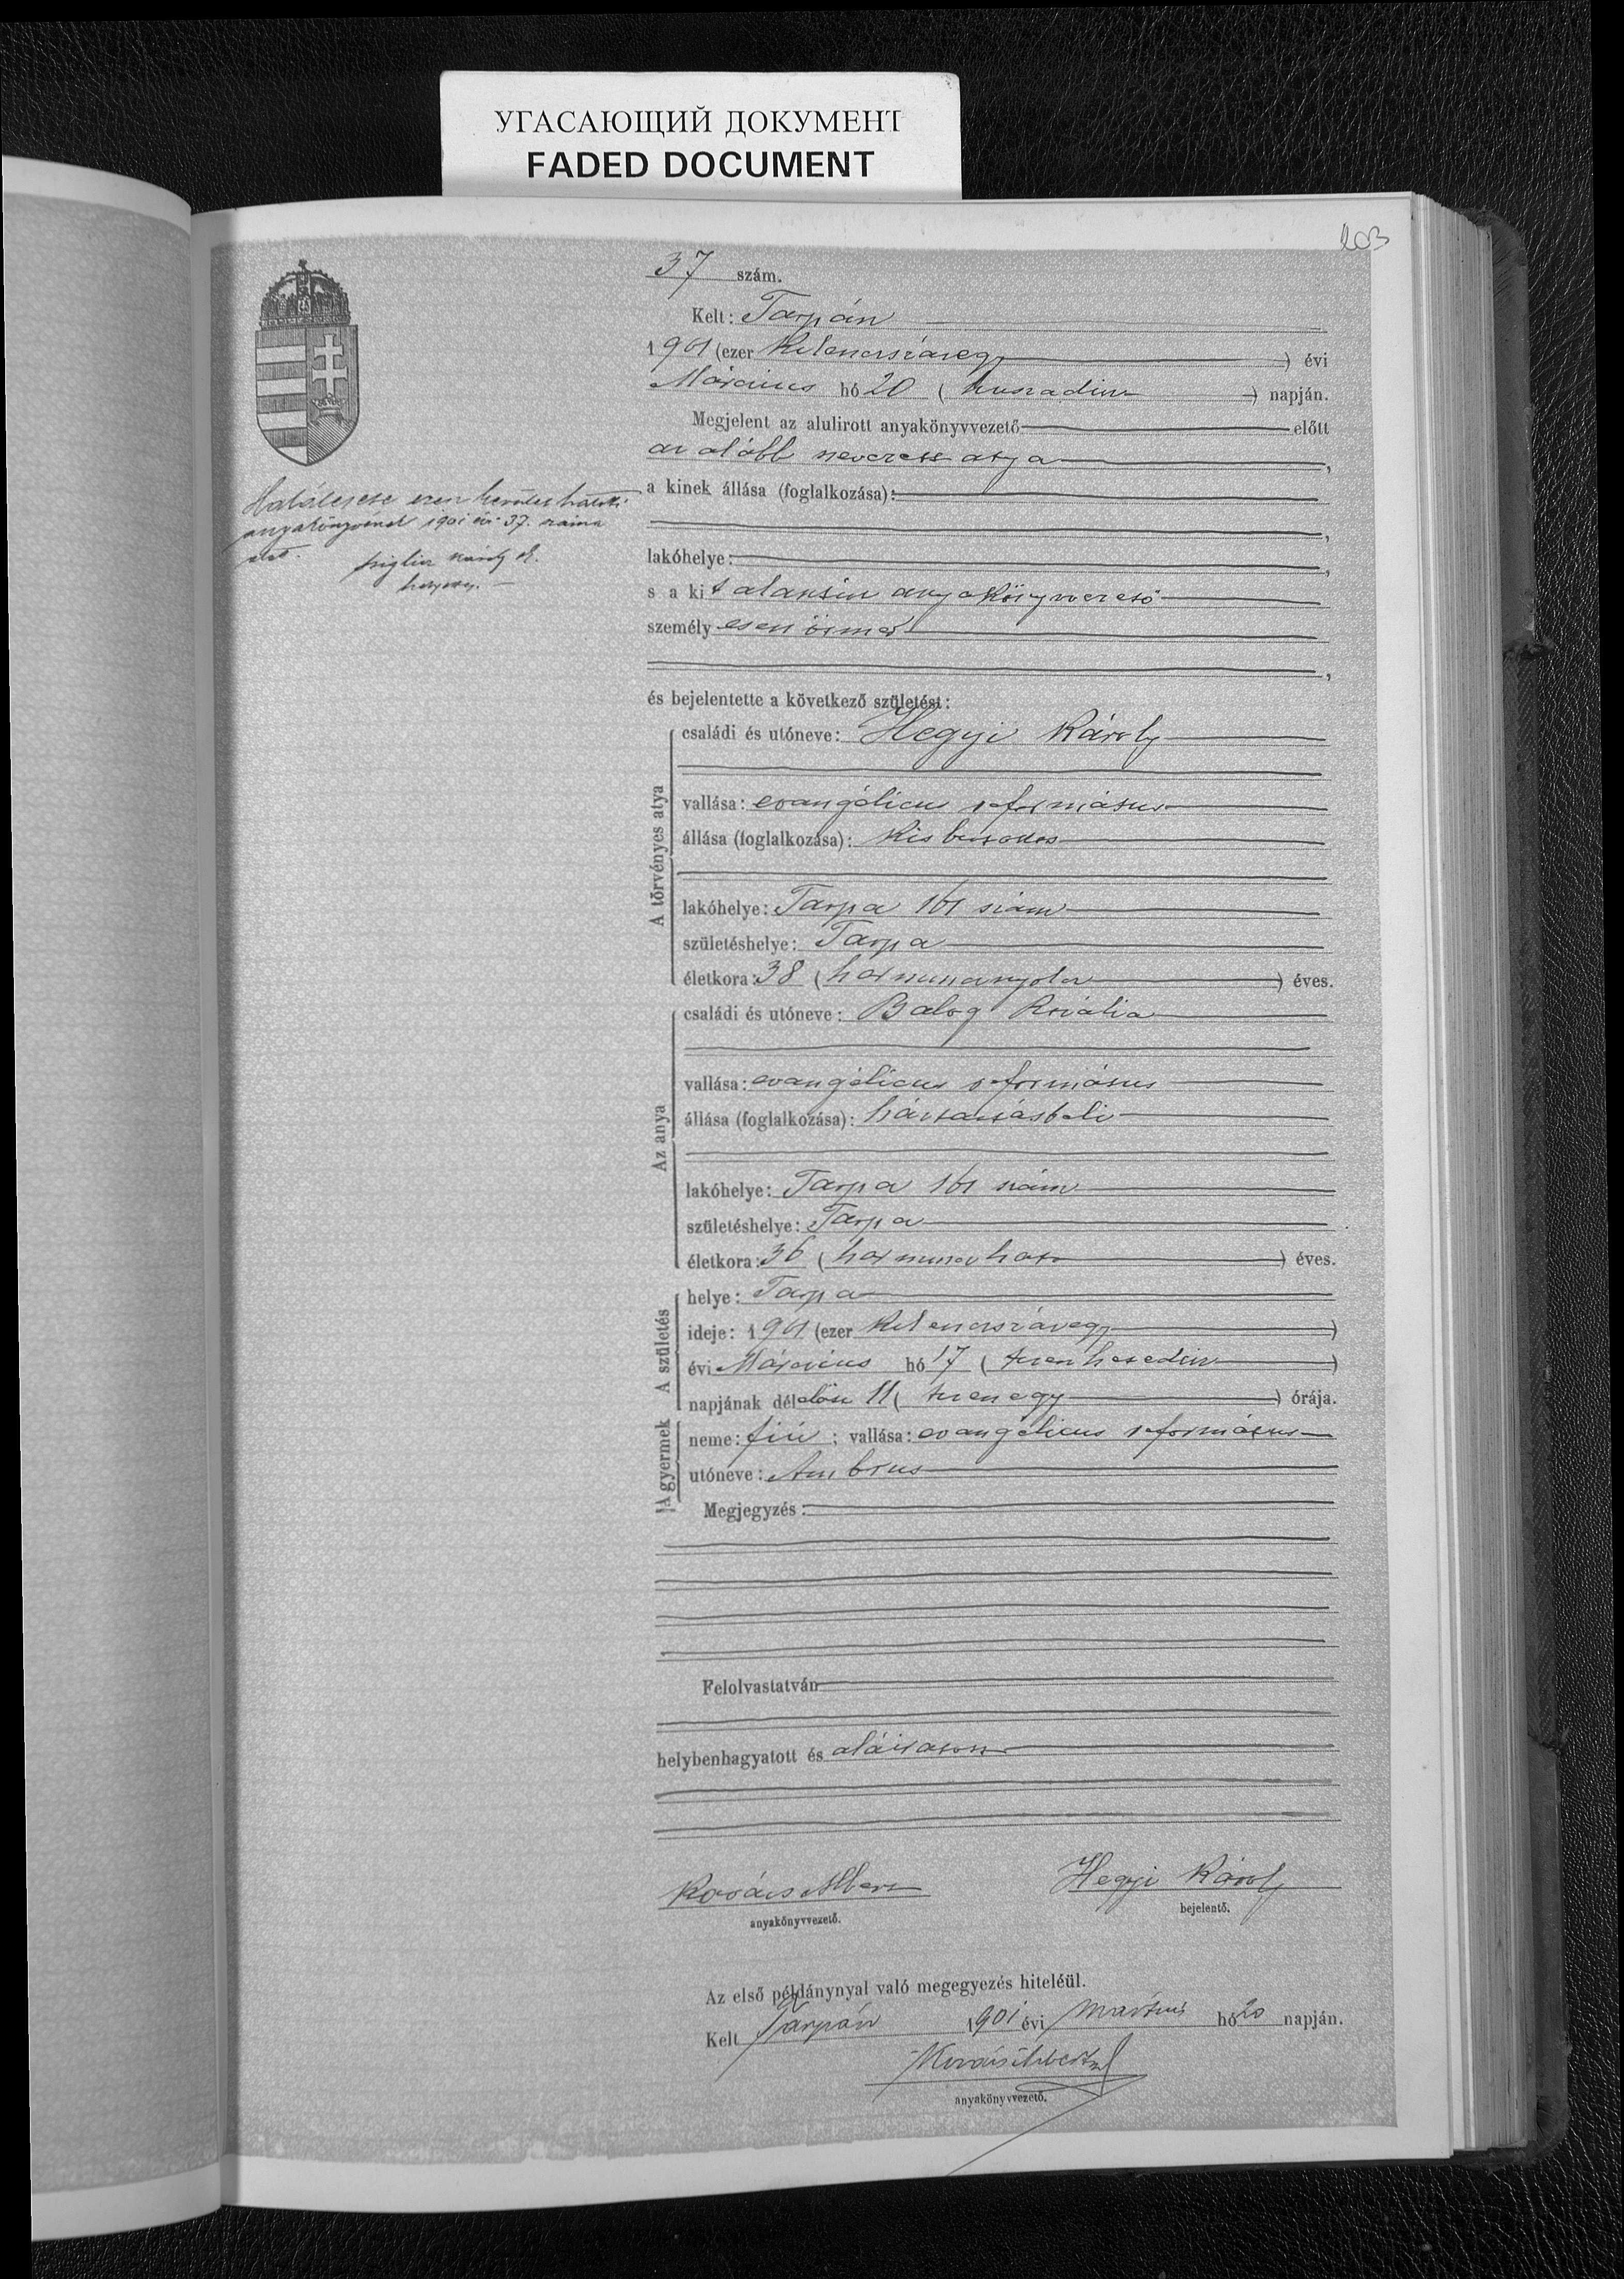 УГАСАЮЩИЙ ДОКУМЕНТ
FADED DOCUMENT
203
37 szám.
Kelt: Tarpán
1901 (ezer kilenczszázegy) évi
Március hó 20 (huszadik) napján.
Megjelent az alulirott anyakönyvvezető előtt
az alább nevezett atya,
a kinek állása (foglalkozása):
,
lakóhelye: ,
s a kit alantirt anyakönyvvezető
személyesen ösmer
,
Halálesete ezen kerület halotti
anyakönyvének 1901 évi 37. száma
alatt.
Károly
helyettes.
és bejelentette a következő születést:
A törvényes atya
családi és utóneve: Hegyi Károly
vallása: evangélicus református
állása (foglalkozása): kisbirtokos
lakóhelye: Tarpa 161 szám
születéshelye: Tarpa
életkora: 38 (harmincznyolcz) éves.
Az anya
családi és utóneve: Balog Rozália
vallása: evangélicus református
állása (foglalkozása): háztartásbeli
lakóhelye: Tarpa 161 szám
születéshelye: Tarpa
életkora: 36 (harminczhat) éves.
A születés
helye: Tarpa
ideje: 1901 (ezer kilenczszázegy)
évi Március hó 17 (tizenhetedik)
napjának délelőtt 11 (tizenegy) órája.
A gyermek
neme: fiú; vallása: evangélicus református
utóneve: Ambrus
Megjegyzés:
Felolvastatván
helybenhagyatott és aláiratott
Kovács Albert
anyakönyvvezető.
Hegyi Károly
bejelentő.
Az első példánynyal való megegyezés hiteléül.
Kelt Tarpán 1901 évi martius hó 20 napján.
Kovács Albert
anyakönyvvezető.